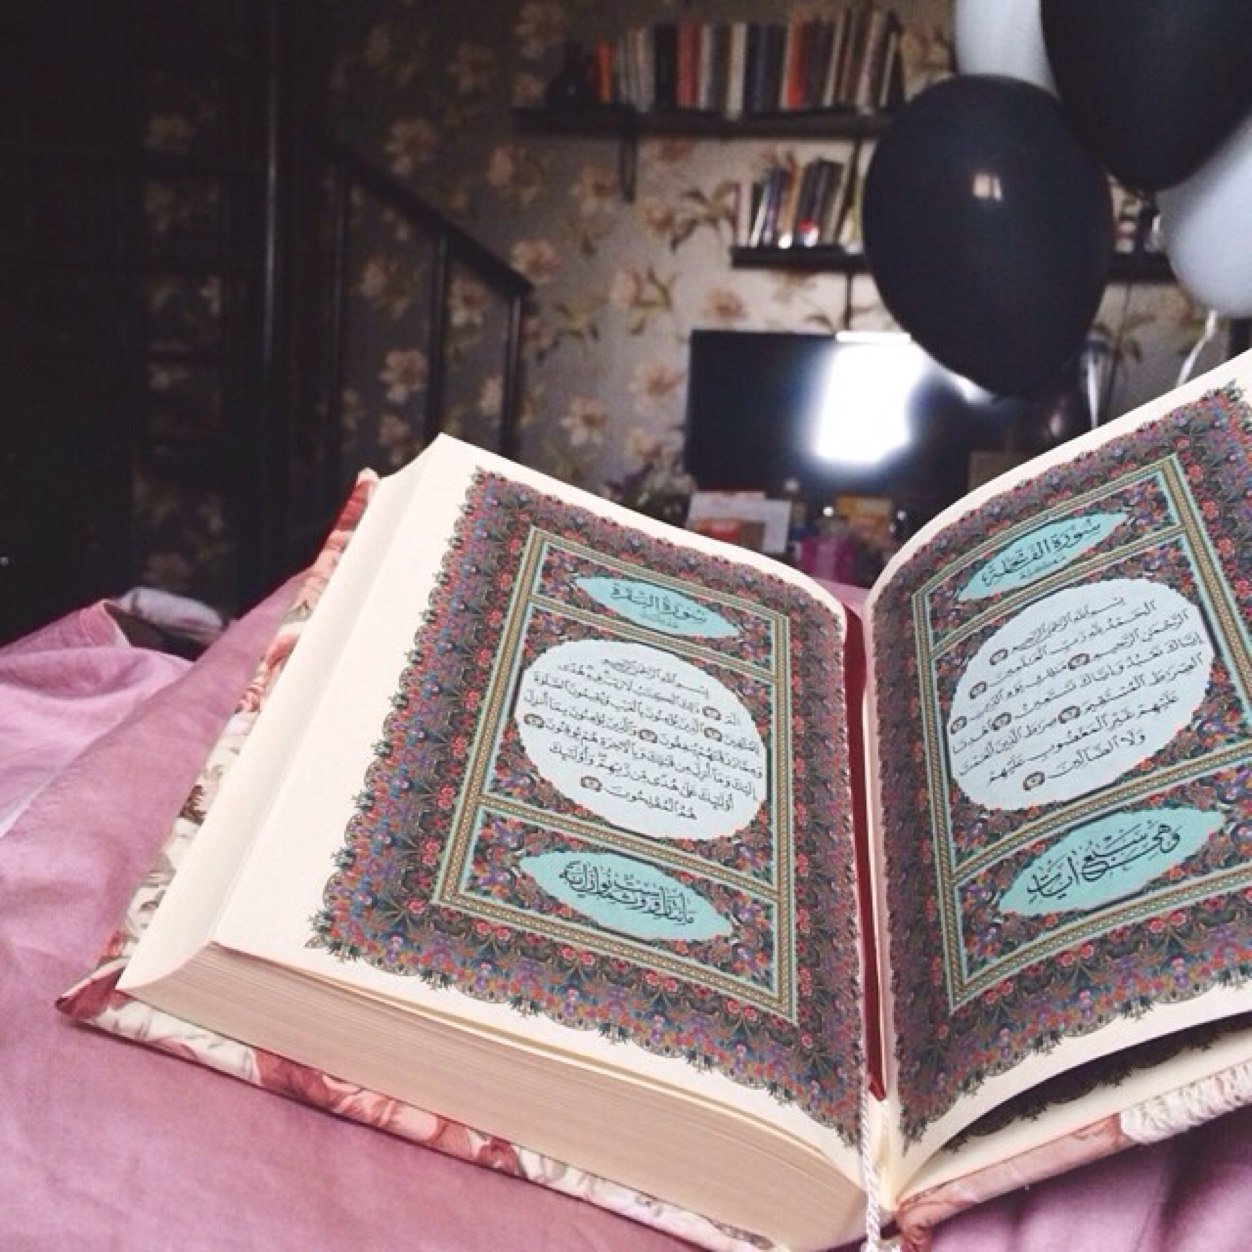 سورة الفاتحة
بسم الله الرحمن الرحيم
الحمد لله رب العالمين
الرحمن الرحيم ملك يوم الدين
إياك نعبد وإياك نستعين اهدنا
الصراط المستقيم صراط الذين أنعمت
عليهم غير المغضوب عليهم
ولا الضالين
وهي سبع آيات
سورة البقرة
بسم الله الرحمن الرحيم
الم ذلك الكتاب لا ريب فيه هدى
للمتقين الذين يؤمنون بالغيب ويقيمون الصلوة
ومما رزقناهم ينفقون والذين يؤمنون بما أنزل
إليك وما أنزل من قبلك وبالآخرة هم يوقنون
أولئك على هدى من ربهم وأولئك
هم المفلحون
مائتان وست وثمانون آية